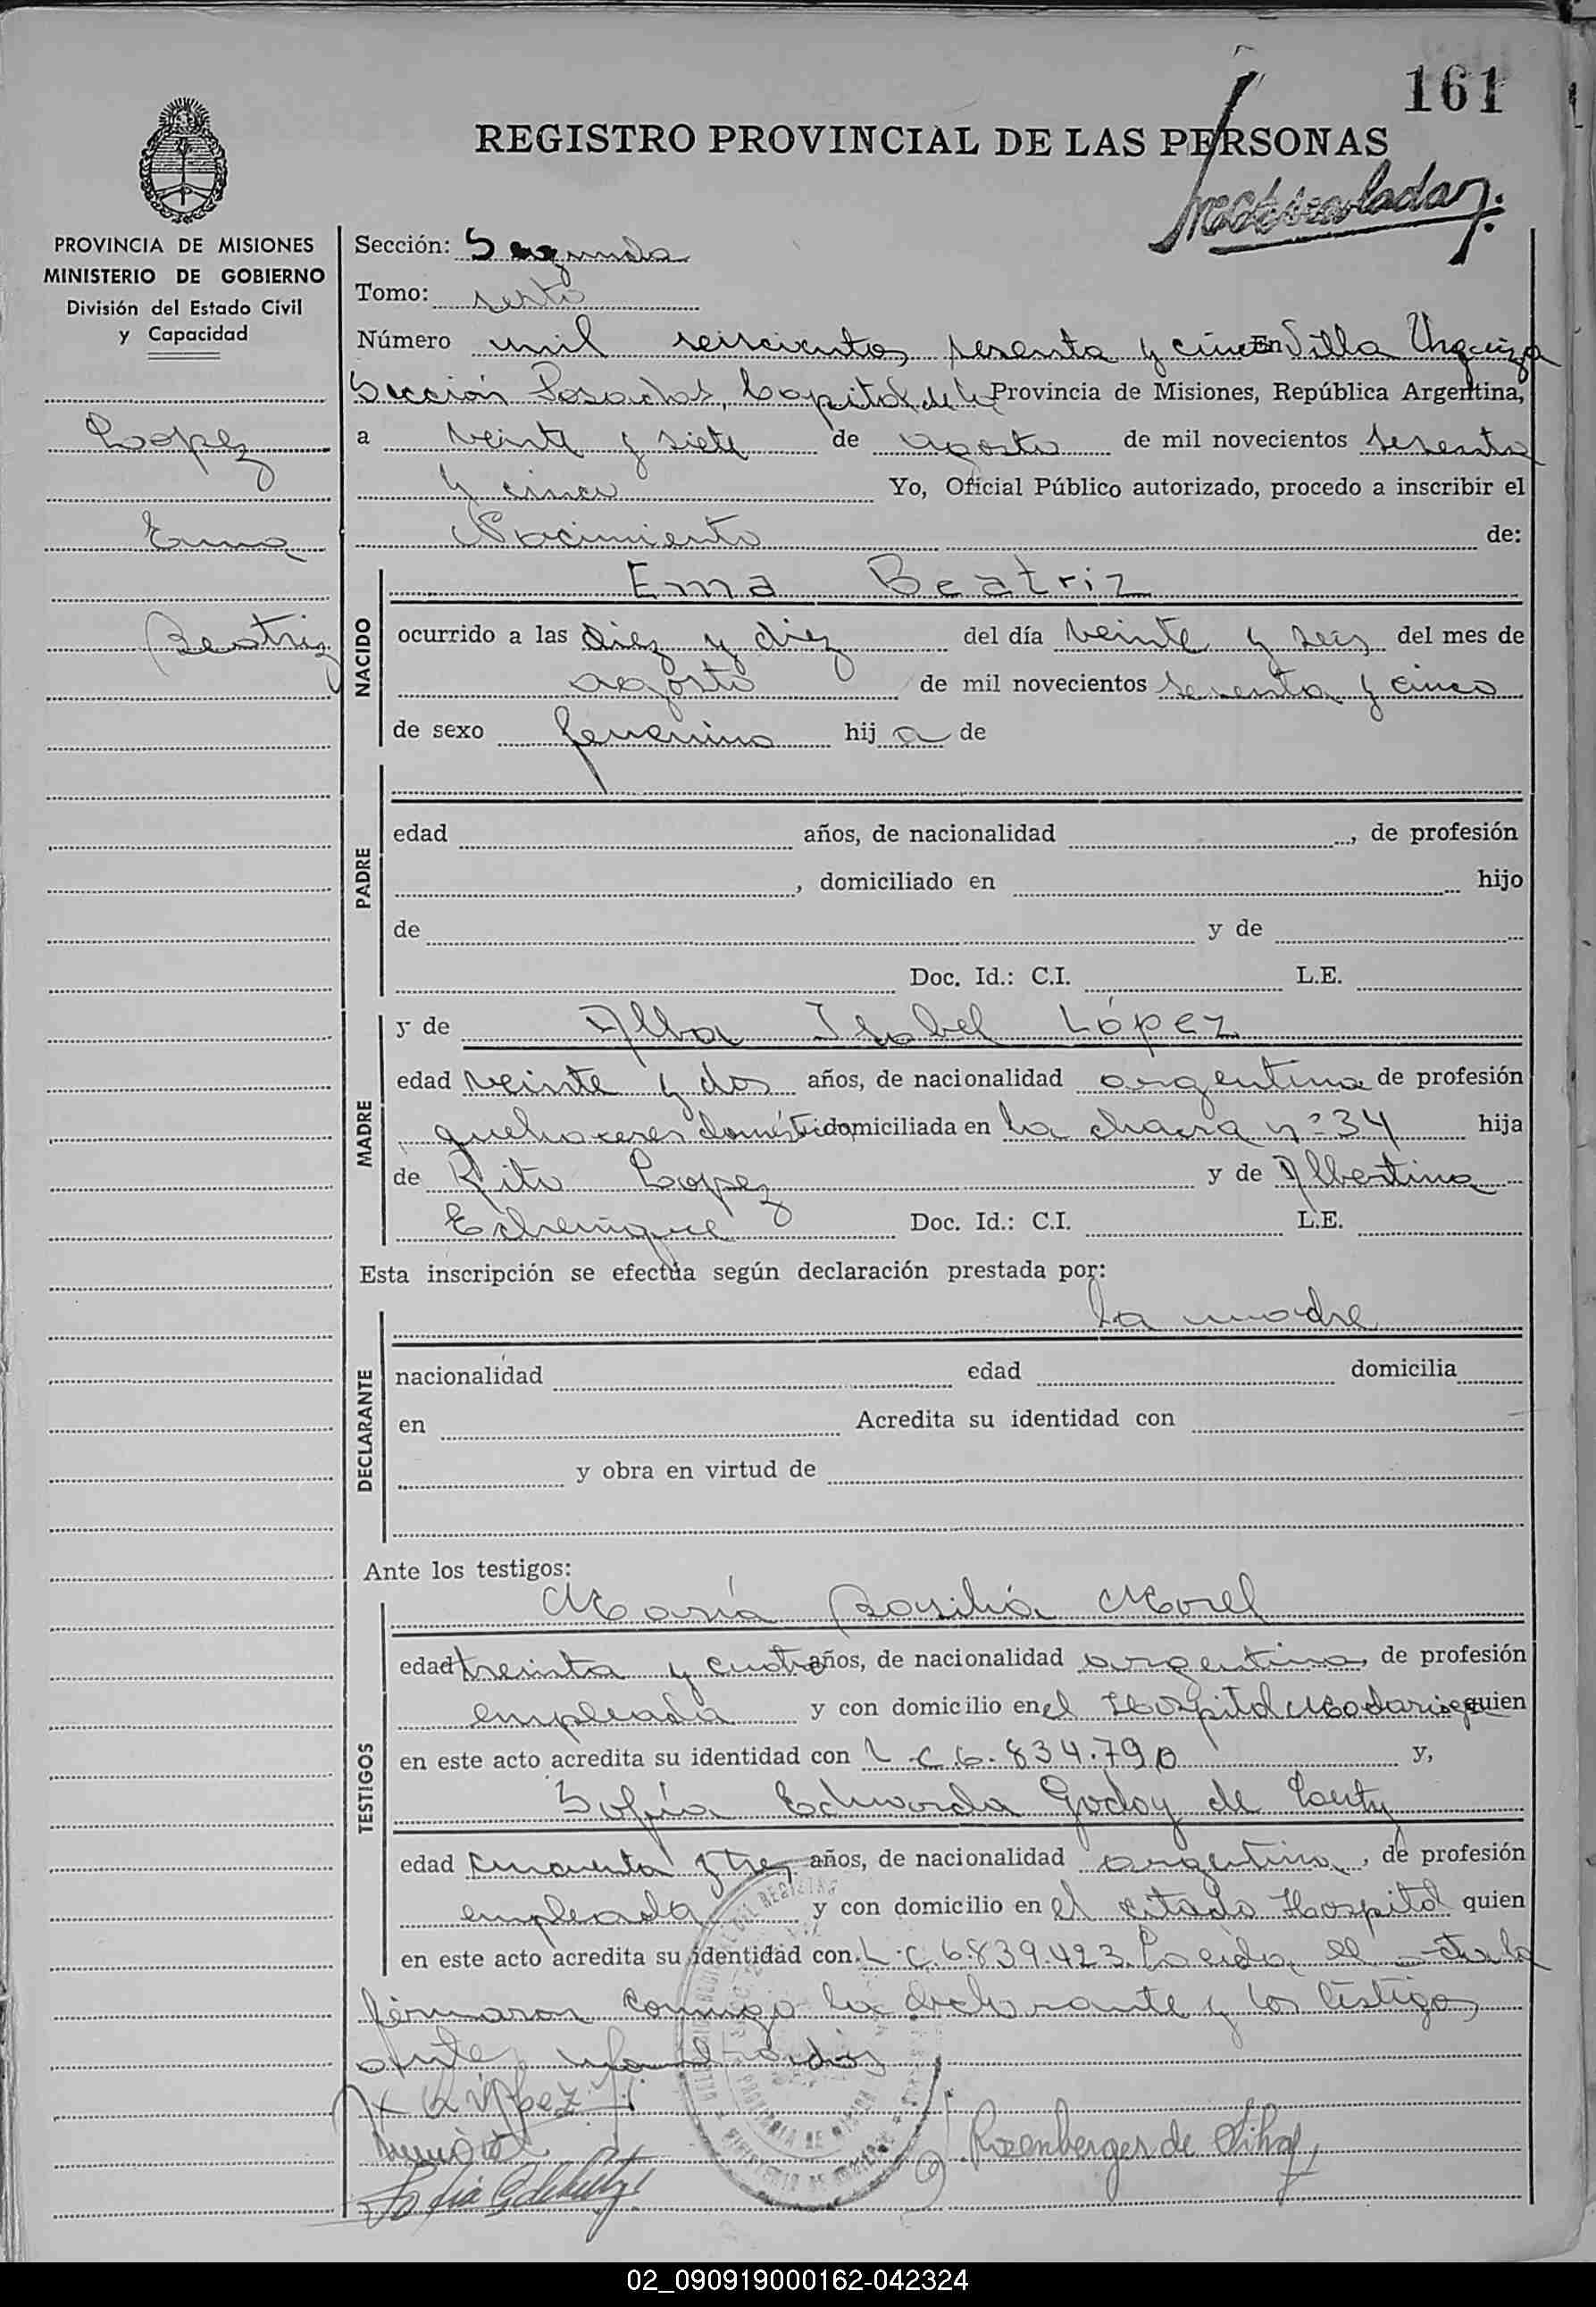 161
REGISTRO PROVINCIAL DE LAS PERSONAS
PROVINCIA DE MISIONES
MINISTERIO DE GOBIERNO
División del Estado Civil
y Capacidad
Lopez
Ema
Beatriz
Sección: Segunda
Tomo: sexto
Número mil seiscientos sesenta y cinco En Villa Urquiza
Sección Posadas, Capital de la Provincia de Misiones, República Argentina,
a veinte y siete de agosto de mil novecientos sesenta
y cinco Yo, Oficial Público autorizado, procedo a inscribir el
Nacimiento de:
NACIDO
Ema Beatriz
ocurrido a las diez y diez del día veinte y seis del mes de
agosto de mil novecientos sesenta y cinco
de sexo femenino hija de
PADRE
edad años, de nacionalidad , de profesión
, domiciliado en hijo
de y de
Doc. Id.: C.I. L.E.
MADRE
y de Alba Isabel López
edad veinte y dos años, de nacionalidad argentina de profesión
quehaceres domésticos domiciliada en la chacra nº 34 hija
de Rito Lopez y de Albertina
Echenique Doc. Id.: C.I. L.E.
Esta inscripción se efectúa según declaración prestada por:
la madre
DECLARANTE
nacionalidad edad domicilia
en Acredita su identidad con
y obra en virtud de
Ante los testigos:
TESTIGOS
María Basilia Morel
edad treinta y cuatro años, de nacionalidad argentina, de profesión
empleada y con domicilio en el Hospital Madariaga quien
en este acto acredita su identidad con L.C. 6.834.790 y,
Sofía Eduarda Godoy de
edad cincuenta y tres años, de nacionalidad argentina, de profesión
empleada y con domicilio en el citado Hospital quien
en este acto acredita su identidad con L.C. 6.839.423. Leída el acta la
firmaron conmigo la declarante y los testigos
antes
López
Rozenberger de
02_090919000162-042324